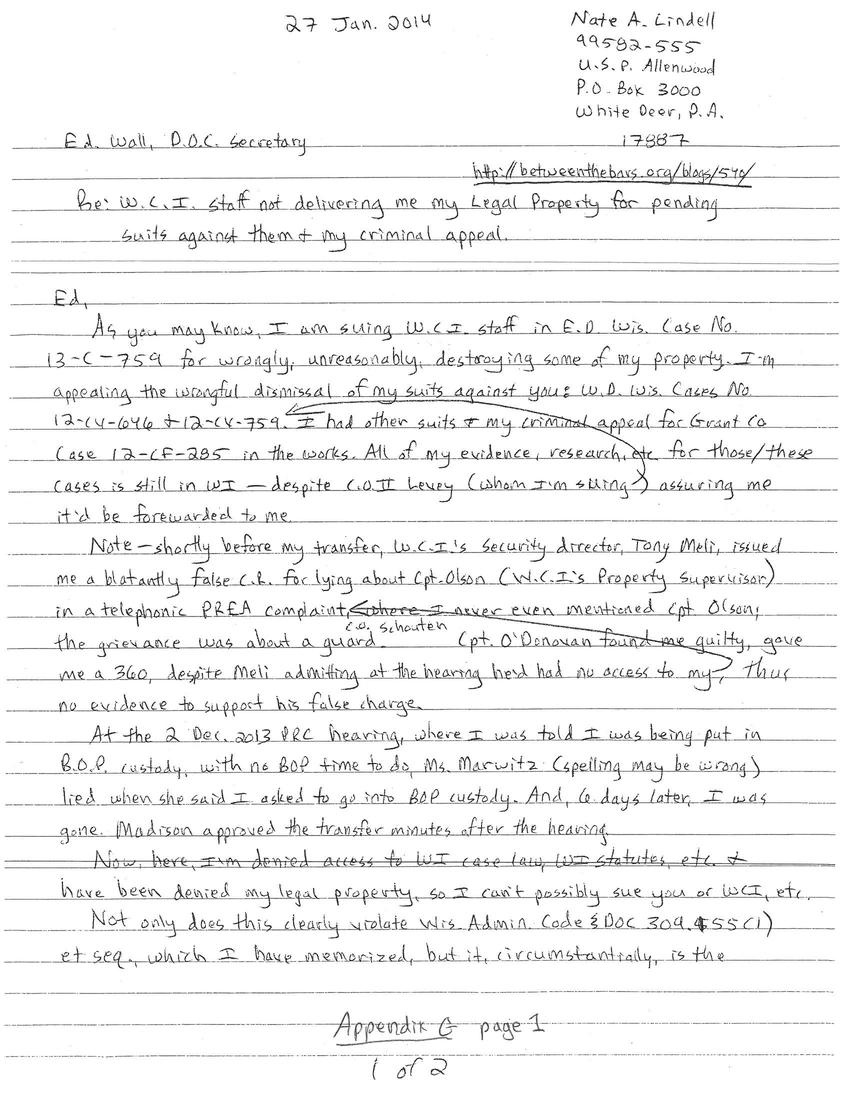 27 Jan. 2014
Nate A. Lindell
99582-555
U.S.P. Allenwood
P.O. Box 3000
White Deer, P.A.
17887
Ed. Wall, D.O.C. Secretary
http://betweenthebars.org/blogs/540/
Re: W.C.I. staff not delivering me my Legal Property for pending
suits against them + my criminal appeal.
Ed,
As you may know, I am suing W.C.I. staff in E.D. Wis. Case No.
13-C-759 for wrongly, unreasonably, destroying some of my property. I'm
appealing the wrongful dismissal of my suits against you: W.D. Wis. Cases No.
12-CV-646 + 12-CV-759. I had other suits + my criminal appeal for Grant Co
Case 12-CF-285 in the works. All of my evidence, research, etc. for those/these
cases is still in WI — despite C.O.II Levey (whom I'm suing) assuring me
it'd be forewarded to me.
Note — shortly before my transfer, W.C.I.'s security director, Tony Meli, issued
me a blatantly false C.R. for lying about Cpt. Olson (W.C.I's Property Supervisor)
in a telephonic PREA complaint, where I never even mentioned Cpt Olson;
the grievance was about a guard. C.O. Schouten Cpt. O'Donovan found me guilty, gave
me a 360, despite Meli admitting at the hearing he'd had no access to my, thus
no evidence to support his false charge.
At the 2 Dec. 2013 PRC hearing, where I was told I was being put in
B.O.P. custody, with no BOP time to do, Ms. Marwitz (spelling may be wrong)
lied when she said I asked to go into BOP custody. And, 6 days later, I was
gone. Madison approved the transfer minutes after the hearing.
Now, here, I'm denied access to WI case law, WI statutes, etc. +
have been denied my legal property, so I can't possibly sue you or WCI, etc.
Not only does this clearly violate Wis. Admin. Code § DOC 309.155(1)
et seq., which I have memorized, but it, circumstantially, is the
Appendix G page 1
1 of 2